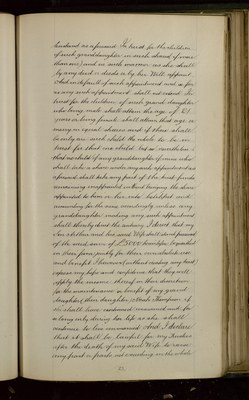 husband as aforesaid In trust for the children
of such granddaughter in such shares if more
than one and in such manner as she shall
by any deed or deeds or by her Will appoint
And in default of such appointment and so far
as any such appointment shall not extend In
trust for the children of such grand daughter
who being male shall attain the age of 21
years or being female shall attain that age or
marry in equal shares and if there shall
be only one such child the whole to be in
trust for that one child but so nevertheless
that no child of any granddaughter of mine who
shall take a share under any such appointment as
aforesaid shall take any part of the trust funds
remaining unappointed without bringing the share
appointed to him or her into hotchpot and
accounting for the same accordingly unless any
granddaughter making any such appointment
shall thereby direct the contrary I direct that my
Son and his said Wife shall stand possessed
of the said sum of £5000 bequeathed
in their favor jointly for their own absolute use
and benefit Moreover (without creating any trust)
express my hope and confidence that they will
apply the income thereof in their discretion
for the maintenance or benefit of my grand
daughter their daughter if
she shall have remained unmarried and for
so long only during her life as she shall
continue to be unmarried And I declare
that it shall be lawful for my Trustees
after the death of my said Wife to raise
any part or parts not exceeding in the whole